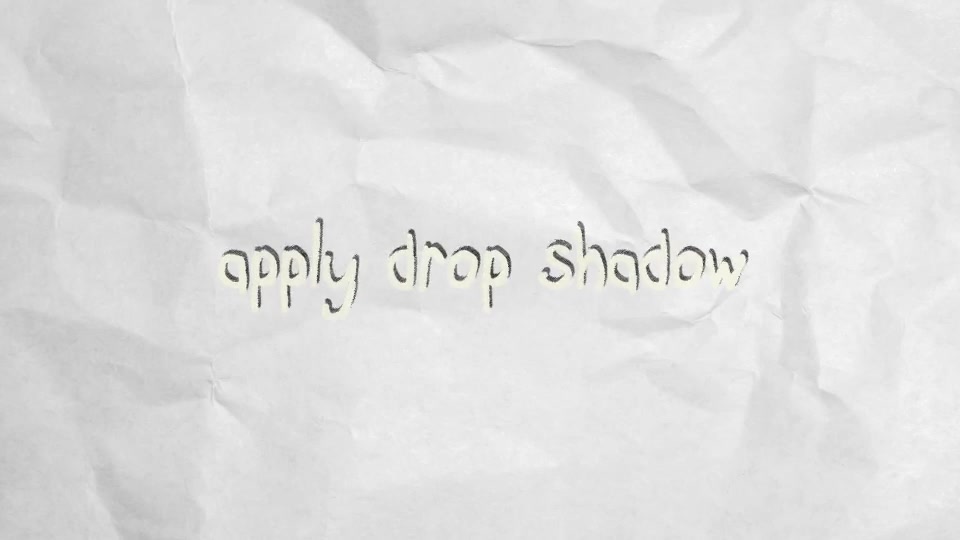 apply drop shadow